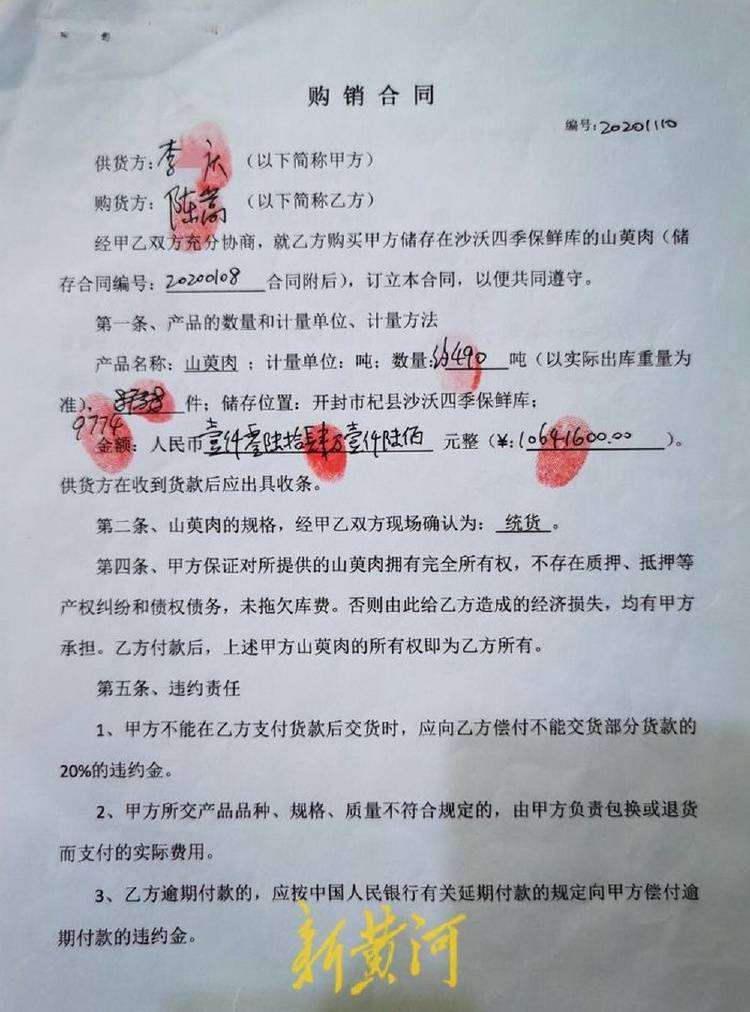 购销合同
编号:20201110
供货方:李 庆 （以下简称甲方）
购货方:陈嵩 （以下简称乙方）
经甲乙双方充分协商，就乙方购买甲方储存在沙沃四季保鲜库的山萸肉（储
存合同编号：20200108 合同附后），订立本合同，以便共同遵守。
第一条、产品的数量和计量单位、计量方法
产品名称：山萸肉 ；计量单位：吨；数量:约490 吨（以实际出库重量为
准）， 件；储存位置：开封市杞县沙沃四季保鲜库；
9774
金额：人民币壹仟零陆拾肆万壹仟陆佰 元整（¥:10641600.00 ）。
供货方在收到货款后应出具收条。
第二条、山萸肉的规格，经甲乙双方现场确认为： 统货 。
第四条、甲方保证对所提供的山萸肉拥有完全所有权，不存在质押、抵押等
产权纠纷和债权债务，未拖欠库费。否则由此给乙方造成的经济损失，均有甲方
承担。乙方付款后，上述甲方山萸肉的所有权即为乙方所有。
第五条、违约责任
1、甲方不能在乙方支付货款后交货时，应向乙方偿付不能交货部分货款的
20%的违约金。
2、甲方所交产品品种、规格、质量不符合规定的，由甲方负责包换或退货
而支付的实际费用。
3、乙方逾期付款的，应按中国人民银行有关延期付款的规定向甲方偿付逾
期付款的违约金。
新黄河